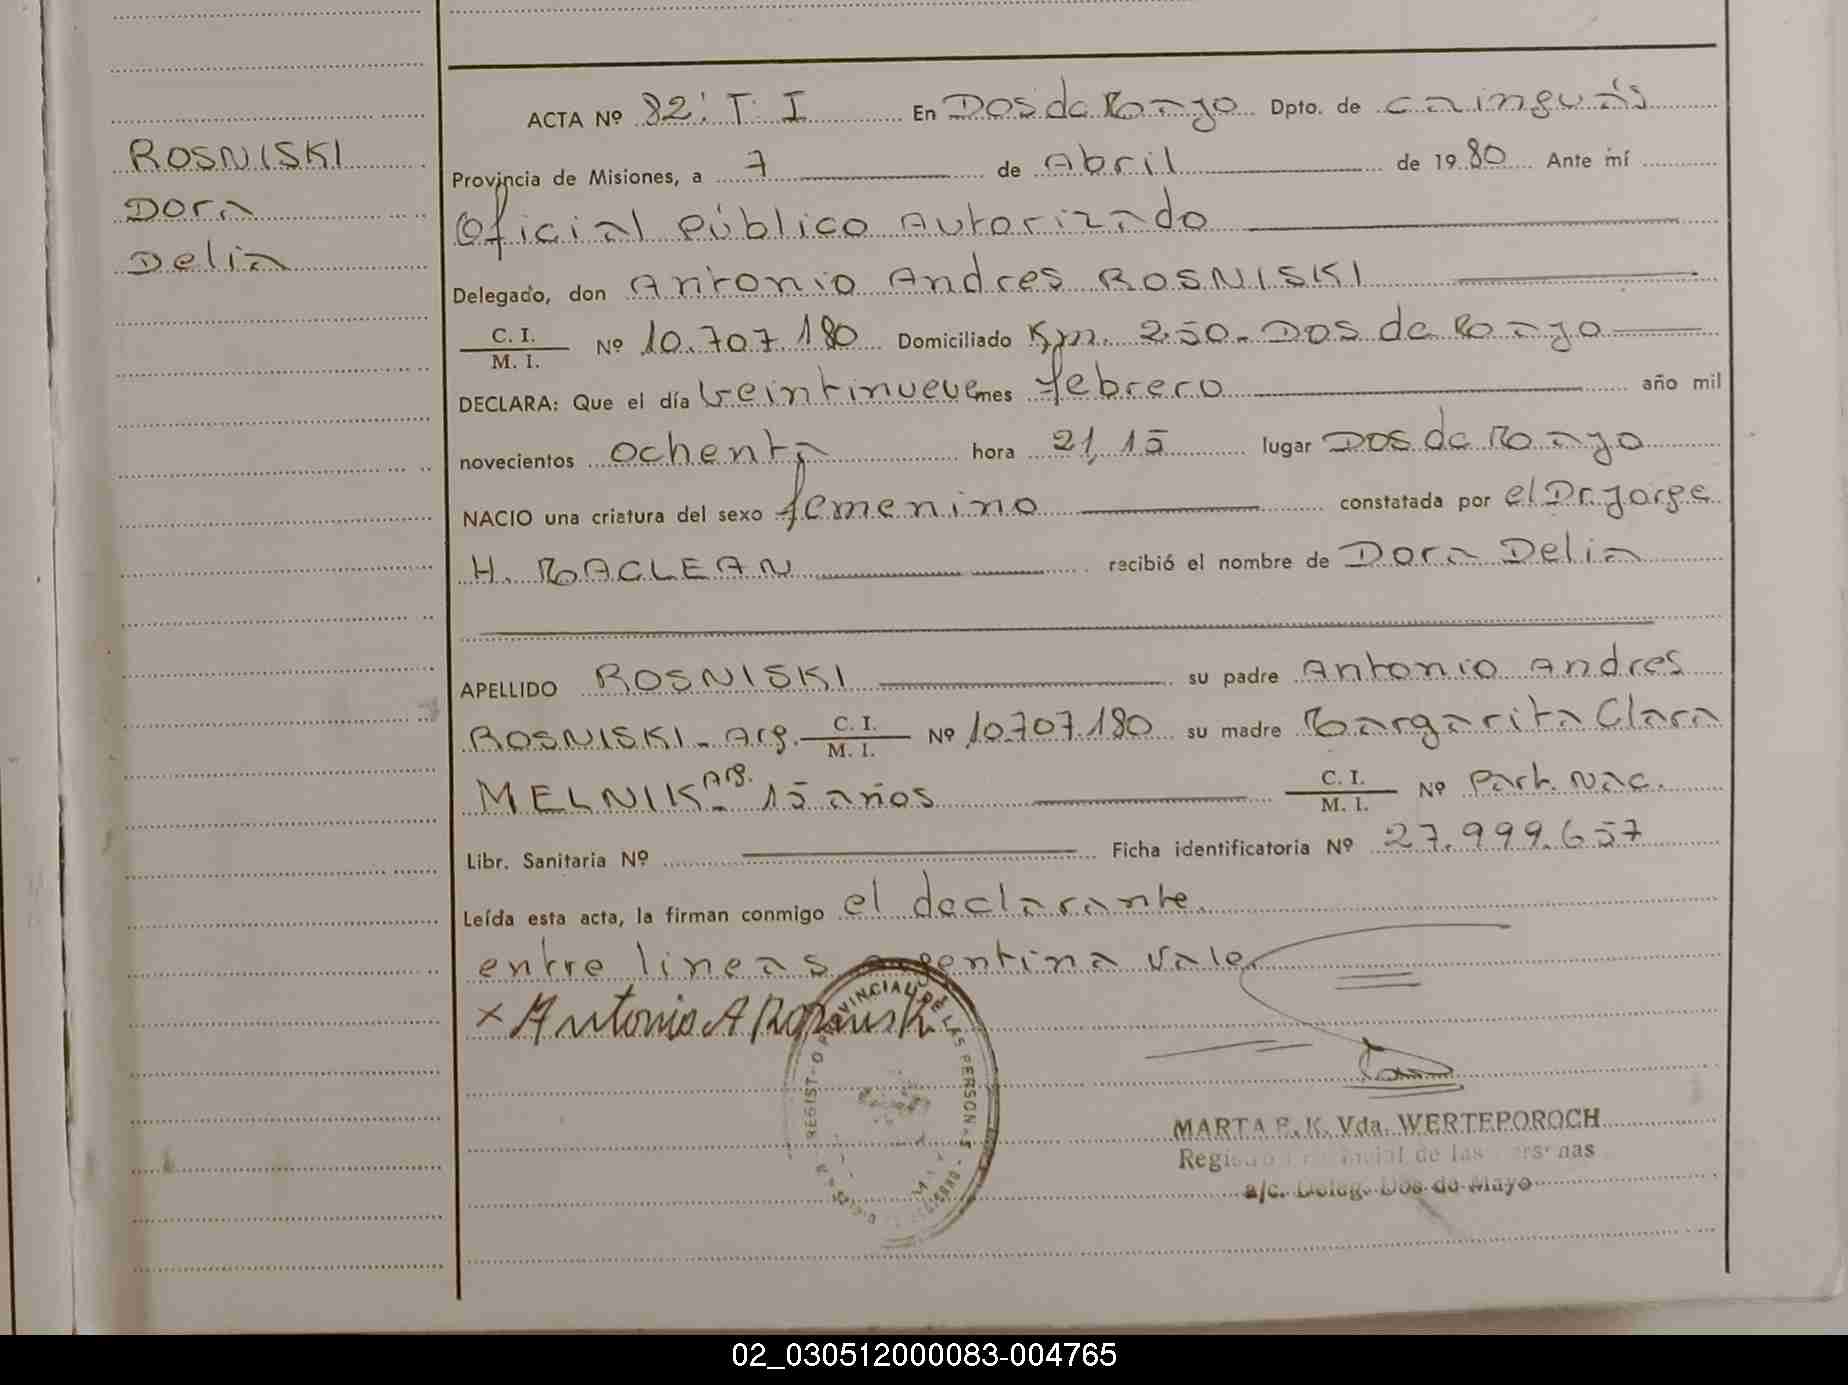 ROSNISKI
Dora
Delia
ACTA Nº 82. T. I En Dos de Mayo Dpto. de Cainguás
Provincia de Misiones, a 7 de Abril de 1980 Ante mí
Oficial Público Autorizado
Delegado, don Antonio Andres ROSNISKI
C. I.
M. I. Nº 10.707.180 Domiciliado Km. 250. Dos de Mayo
DECLARA: Que el día Veintinueve mes febrero año mil
novecientos ochenta hora 21,15 lugar Dos de Mayo
NACIO una criatura del sexo femenino constatada por el Dr. Jorge
H. MACLEAN recibió el nombre de Dora Delia
APELLIDO ROSNISKI su padre Antonio Andres
ROSNISKI - Arg. C. I. M. I. Nº 10.707.180 su madre Margarita Clara
MELNIK - Arg. 15 años C. I. M. I. Nº Part. Nac.
Libr. Sanitaria Nº Ficha identificatoria Nº 27.999.657
Leída esta acta, la firman conmigo el declarante.
entre lineas argentina vale.
x Antonio A Rosniski
MARTA E. K. Vda. WERTEPOROCH
Registro Provincial de las Personas
a/c. Deleg. Dos de Mayo
02_030512000083-004765